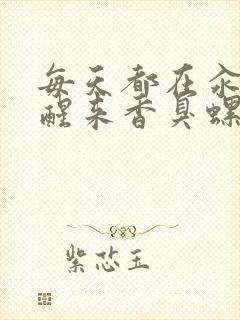 每天都在汆
醒来香臭螺
紫芯玉